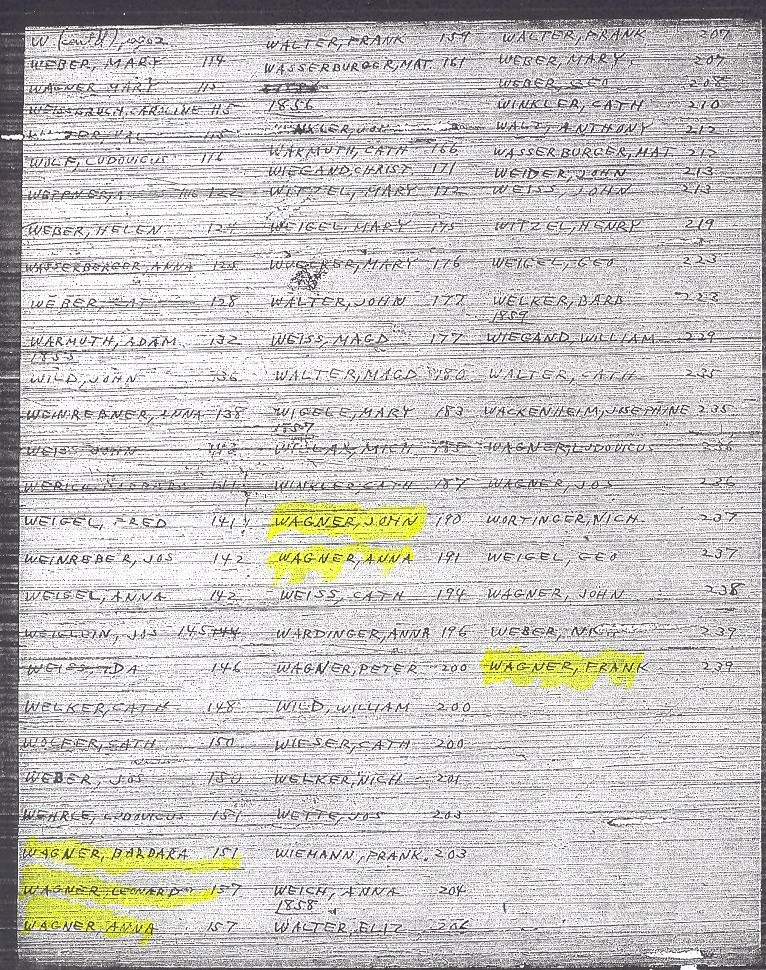 W (cont'd), page 2
WEBER, MARY 114
WAGNER MARY 115
WEISSBRUCH, CAROLINE 115
VAL 115
WOLF, LUDOVICUS 116
122
WEBER, HELEN 124
WASSERBERGER, ANNA 125
WEBER, CAT 128
WARMUTH, ADAM 132
1855
WILD, JOHN 136
WEINREBNER, ANNA 138
WEISS JOHN
WEIGEL, FRED 141
WEINREBER, JOS 142
WEIGEL, ANNA 142
JOS 145
WEISS, IDA 146
WELKER, CATH 148
CATH 150
WEBER, JOS 150
WEHRLE, LUDOVICUS 151
WAGNER, BARBARA 151
WAGNER, LEONARD 157
WAGNER, ANNA 157
WALTER, FRANK 159
WASSERBURGER, MAT. 161
1856
WARMUTH, CATH 166
WIEGAND, CHRIST. 171
WITZEL, MARY 172
WEIGEL, MARY 175
MARY 176
WALTER, JOHN 177
WEISS, MAGD 177
WALTER, MAGD 180
WIGELE, MARY 183
1857
MICH
WINKLER, CATH 187
WAGNER, JOHN 190
WAGNER, ANNA 191
WEISS, CATH 194
WARDINGER, ANNA 196
WAGNER, PETER 200
WILD, WILLIAM 200
WIESER, CATH 200
WELKER, NICH 201
WETTE, JOS 203
WIEMANN, FRANK. 203
WEICH, ANNA 204
1858
WALTER, ELIZ 206
WALTER, FRANK 207
WEBER, MARY 207
WEBER, GEO 208
WINKLER, CATH 210
WALZ, ANTHONY 212
WASSERBURGER, MAT 212
WEIDER, JOHN 213
WEISS, JOHN 213
WITZEL, HENRY 219
WEIGEL, GEO 223
WELKER, BARB
1859
WIEGAND, WILLIAM 229
WALTER, CATH 235
WACKENHEIM, JOSEPHINE 235
WAGNER, LUDOVICUS 236
WAGNER, JOS 236
WORTINGER, NICH. 237
WEIGEL, GEO 237
WAGNER, JOHN 238
WEBER, 239
WAGNER, FRANK 239